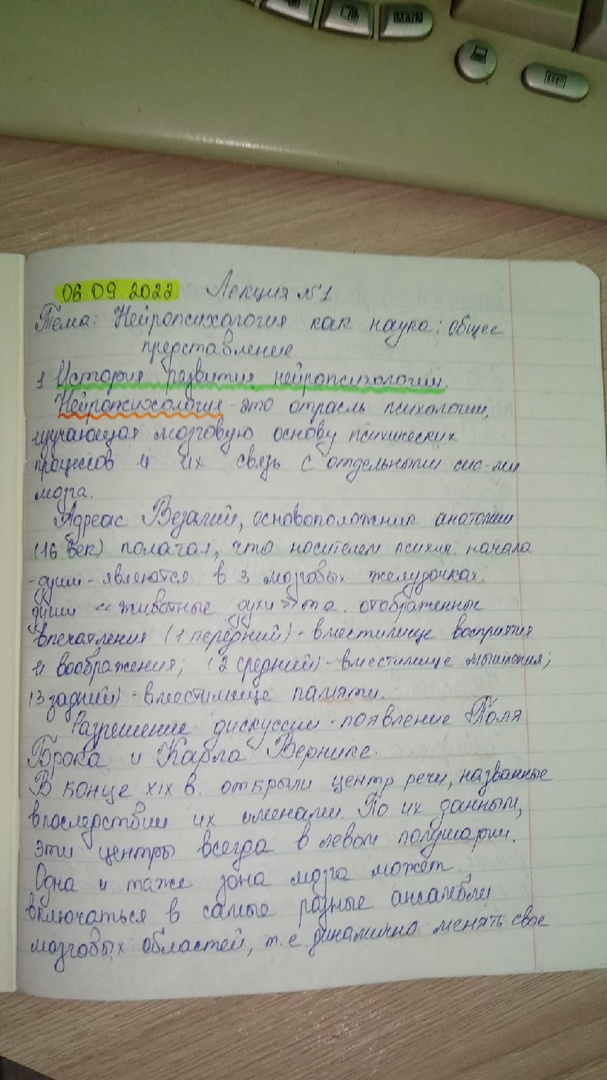 Main
06.09.2022 Лекция №1
Тема: Нейропсихология как наука: общее
представление.
1 История развития нейропсихологии.
Нейропсихология - это отрасль психологии,
изучающая мозговую основу психических
процессов и их связь с отдельными сис-ми
мозга.
Адреас Везалий, основоположник анатомии
(16 век) полагал, что носителем психич. начала
-души- являются в 3 мозговых желудочках.
души "животные духи" отображенные
впечатления (1 передний) - вместилище восприятия
и воображения; (2 средний) - вместилище мышления;
(3 задний) - вместилище памяти.
Разрешение дискуссии - появление Поля
Брока и Карла Вернике.
В конце XIX в. открыли центр речи, названные
впоследствии их именами. По их данным,
эти центры всегда в левом полушарии.
Одна и таже зона мозга может
включаться в самые разные ансамбли
мозговых областей, т.е. динамично менять свое